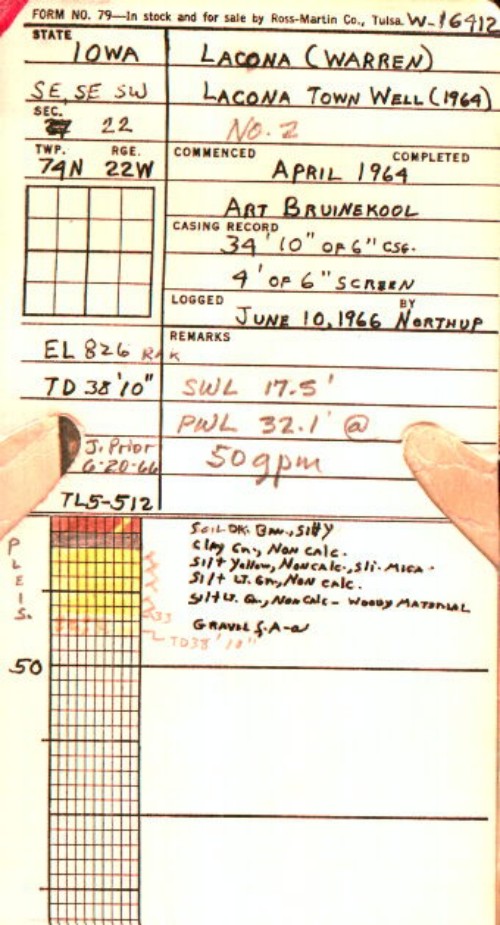 FORM NO. 79—In stock and for sale by Ross-Martin Co., Tulsa. W-16412
STATE
IOWA
LACONA (WARREN)
SE, SE SW
LACONA TOWN WELL (1964)
SEC.
22
No. 2
TWP. RGE.
74N 22W
COMMENCED COMPLETED
APRIL 1964
ART BRUINEKOOL
CASING RECORD
34' 10" OF 6" CSG.
4' OF 6" SCREEN
LOGGED BY
JUNE 10, 1966 NORTHUP
EL 826 RAK
REMARKS
TD 38'10"
SWL 17.5'
PWL 32.1' @
J. Prior
6-20-66
50gpm
TL5-512
PLEIS.
SOIL DK. BRN., SILTY
CLAY GN., NON CALC.
SILT YELLOW, NONCALC., SLI. MICA.
SILT LT. GN., NON CALC.
SILT LT. GN., NON CALC - WOODY MATERIAL
GRAVEL
TD38'10"
50